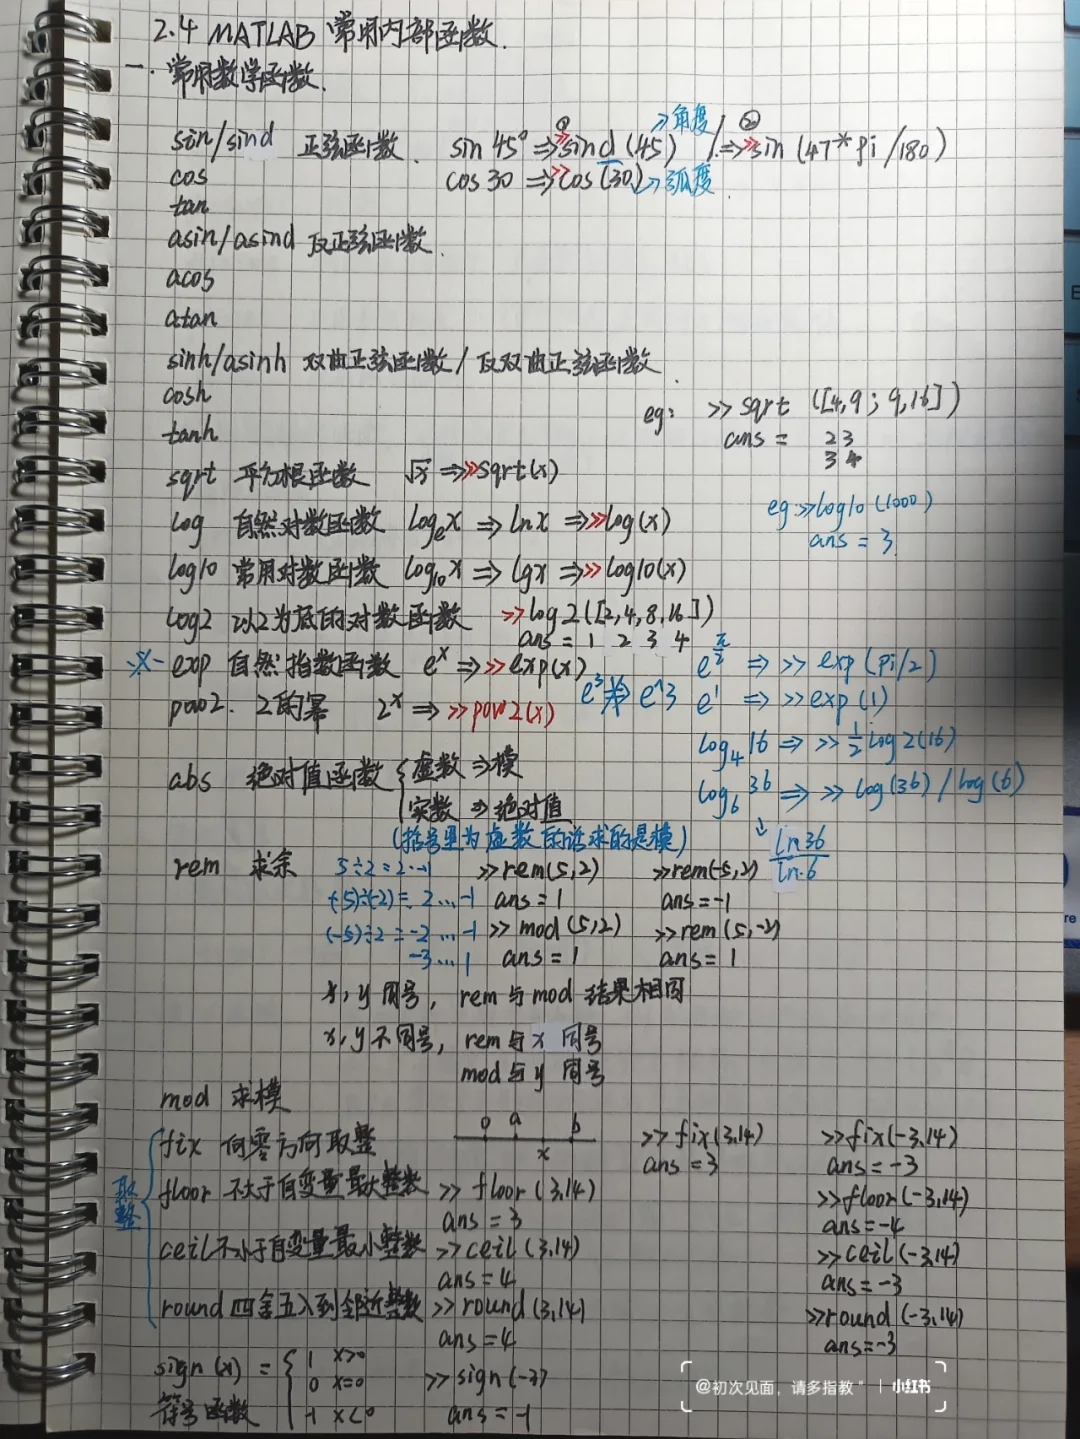 2.4 MATLAB 常用内部函数.
一. 常用数学函数.
sin/sind 正弦函数. sin 45° ⇒ ① >> sind (45) >角度 / ② ⇒ >> sin (47* pi /180)
cos cos 30 ⇒ >> cos (30) → 弧度.
tan
asin/asind 反正弦函数.
acos
atan
sinh/asinh 双曲正弦函数 / 反双曲正弦函数.
cosh eg: >> sqrt ([4,9 ; 9,16])
tanh ans = 2 3
3 4
sqrt 平方根函数 √x ⇒ >> sqrt(x)
log 自然对数函数 logₑx ⇒ lnx ⇒ >> log(x) eg: >> log10 (1000)
ans = 3
log10 常用对数函数 log₁₀x ⇒ lgx ⇒ >> log10(x)
log2 以2为底的对数函数 >> log2([2,4,8,16])
ans = 1 2 3 4
※ exp 自然指数函数 eˣ ⇒ >> exp(x) e^(π/2) ⇒ >> exp(pi/2)
pow2. 2的幂 2ˣ ⇒ >> pow2(x) e³ ⇏ e^3 e¹ ⇒ >> exp(1)
log₄16 ⇒ >> ½log2(16)
abs 绝对值函数 { 虚数 ⇒ 模
实数 ⇒ 绝对值 log₆36 ⇒ >> log(36) / log(6)
(括号里为虚数的话求的是模) ↓ ln36/ln6
rem 求余 5÷2=2…1 >> rem(5,2) >> rem(-5,2)
(-5)÷(-2)= 2…-1 ans = 1 ans = -1
(-5)÷2 = -2 … -1 >> mod (5,2) >> rem(5,-2)
-3 … 1 ans = 1 ans = 1
x, y 同号, rem 与 mod 结果相同
x, y 不同号, rem 与 x 同号
mod 与 y 同号
mod 求模
取整
fix 向零方向取整 0 a x b >> fix(3.14) >> fix(-3.14)
ans = 3 ans = -3
floor 不大于自变量最大整数 >> floor (3.14) >> floor(-3.14)
ans = 3 ans = -4
ceil 不小于自变量最小整数 >> ceil (3.14) >> ceil (-3.14)
ans = 4 ans = -3
round 四舍五入到邻近整数 >> round (3.14) >> round (-3.14)
ans = 4 ans = -3
sign (x) = { 1 x>0
0 x=0 >> sign(-3)
符号函数 -1 x<0 ans = -1
@初次见面，请多指教" | 小红书